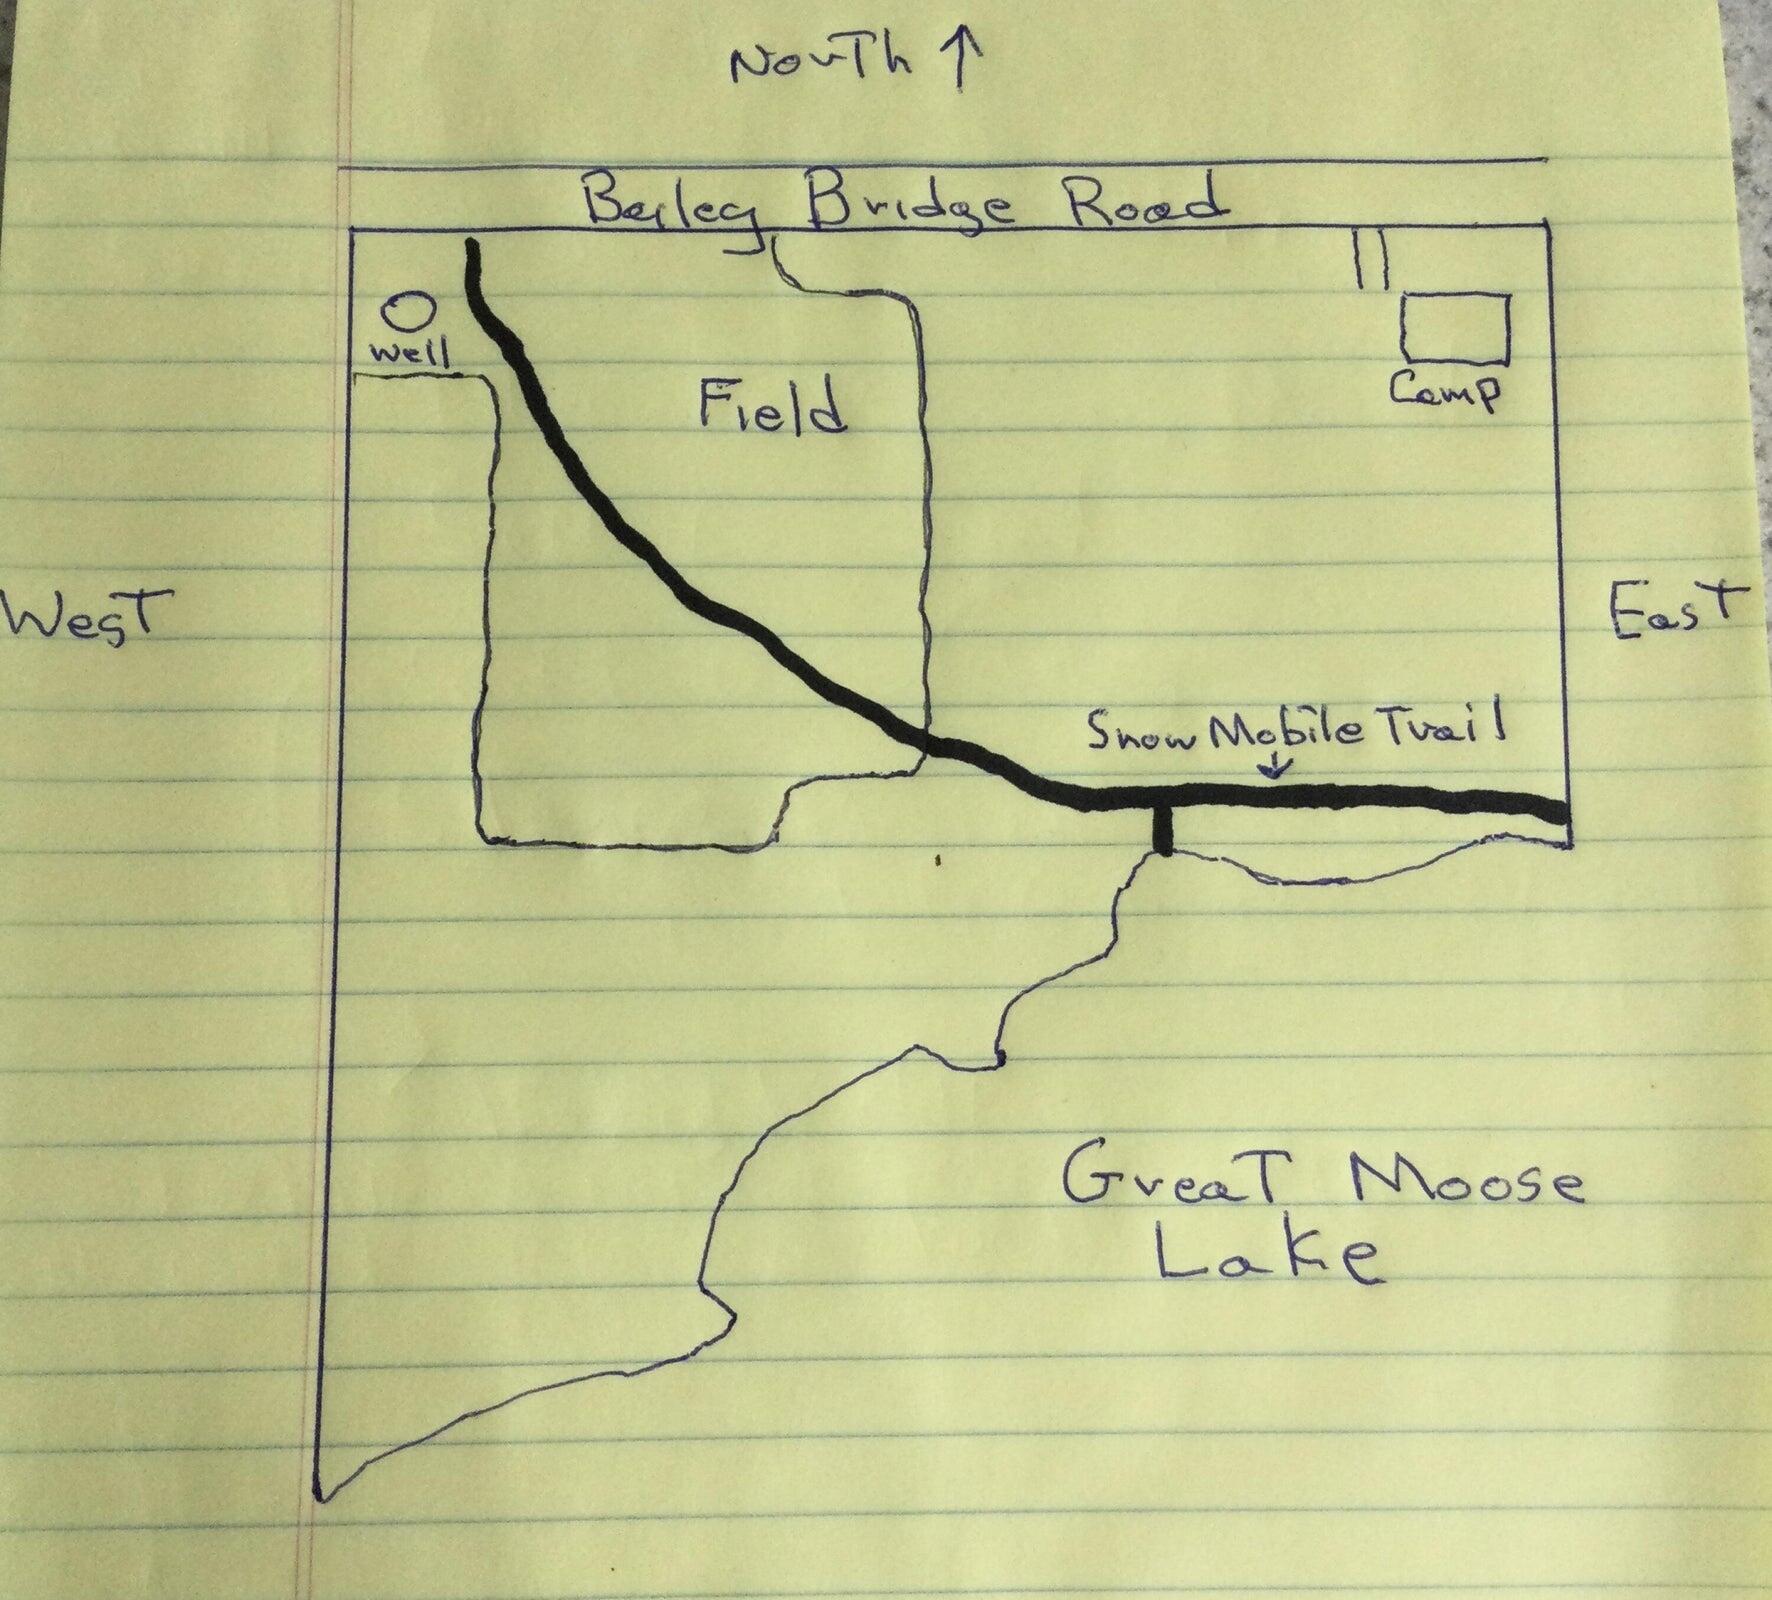 North ↑
Bailey Bridge Road
well
Field
Camp
West
East
Snow Mobile Trail
↓
Great Moose
Lake